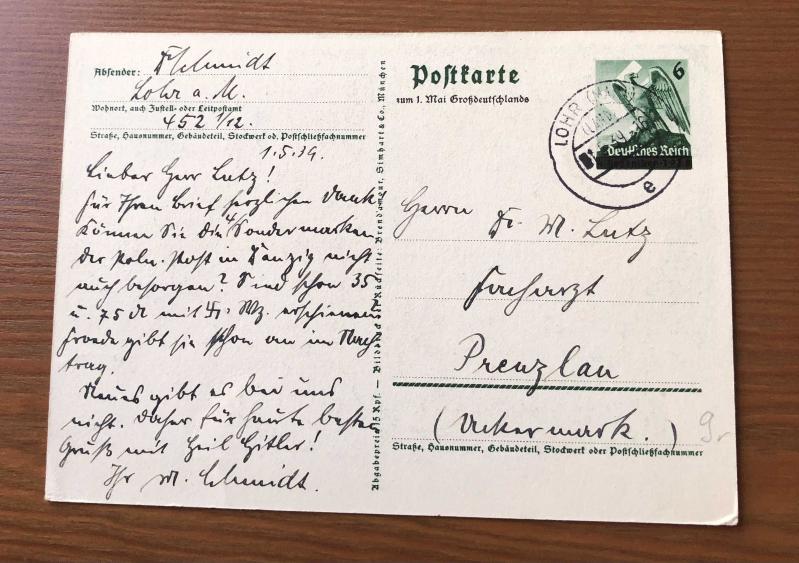 Absender: Schmidt
Lohr a. M.
Wohnort, auch Zustell- oder Leitpostamt
452 1/12.
Straße, Hausnummer, Gebäudeteil, Stockwerk od. Postschließfachnummer
1.5.39.
Lieber Herr Lutz!
Für Ihren Brief herzlichen Dank.
Können Sie die 4 Sondermarken
der Poln. Post in Danzig nicht
auch besorgen? Sind schon 35
u. 75 mit Wz. erschienen
gibt sie schon an im Nach-
trag.
Neues gibt es bei uns
nicht. Daher für heute besten
Gruß mit Heil Hitler!
Ihr M. Schmidt.
Abgabepreis 15 Rpf. — Bilddruck der Rückseite: Brend'amour, Simhart & Co., München
Postkarte
zum 1. Mai Großdeutschlands
6
Deutsches Reich
LOHR (MAIN)
e
Herrn Dr. M. Lutz
Facharzt
Prenzlau
(Uckermark.)
Straße, Hausnummer, Gebäudeteil, Stockwerk oder Postschließfachnummer